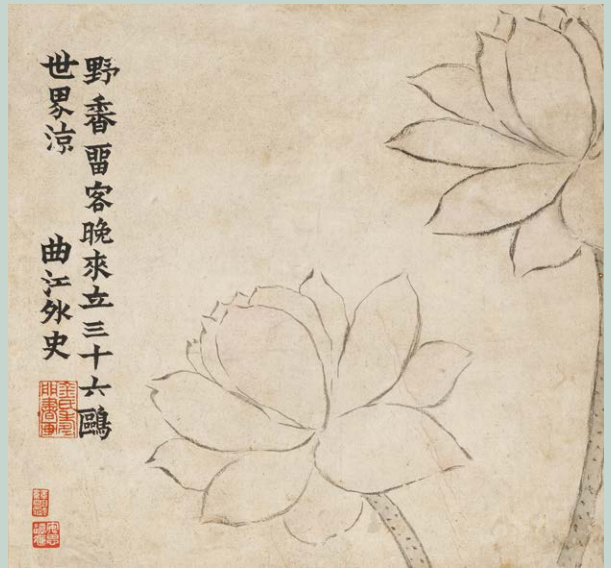 野香畱客晚來立三十六鷗
世界涼
曲江外史